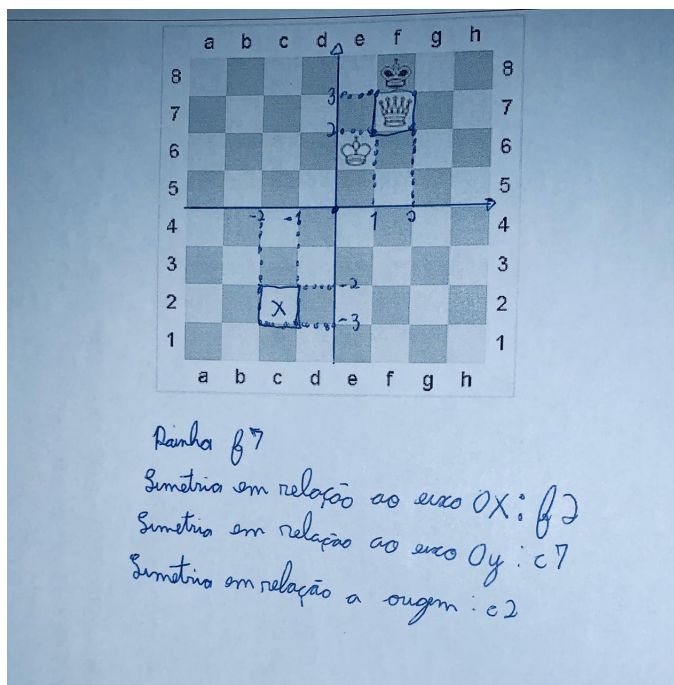 a b c d e f g h
8 8
7 3 7
2
6 6
5 5
-2 -1 1 2
4 4
3 3
-2
2 X 2
-3
1 1
a b c d e f g h
Rainha f7
Simetria em relação ao eixo OX: f2
Simetria em relação ao eixo Oy: c7
Simetria em relação a origem: c2